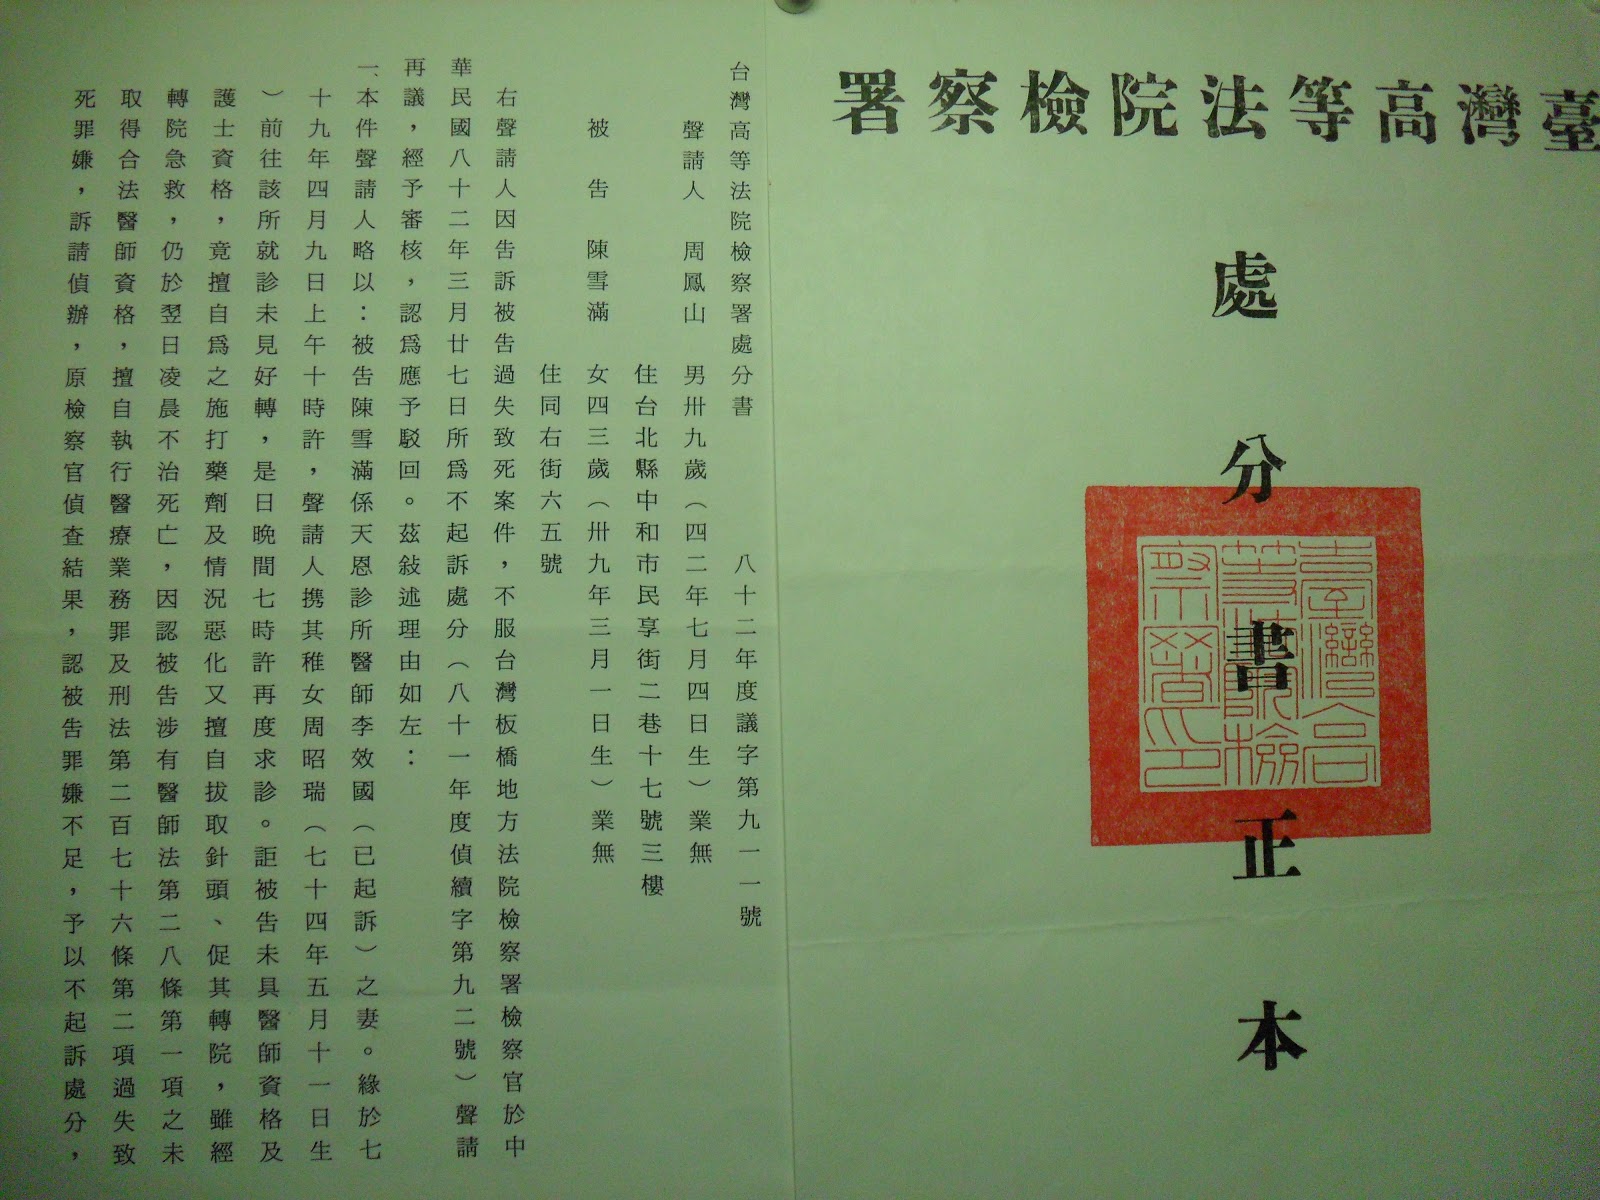 臺灣高等法院檢察署
處分書正本
臺灣高
等法院檢
察署印
台灣高等法院檢察署處分書　八十二年度議字第九一一號
聲請人　周鳳山　男卅九歲（四二年七月四日生）業無
住台北縣中和市民享街二巷十七號三樓
被　告　陳雪滿　女四三歲（卅九年三月一日生）業無
住同右街六五號
右聲請人因告訴被告過失致死案件，不服台灣板橋地方法院檢察署檢察官於中
華民國八十二年三月廿七日所爲不起訴處分（八十一年度偵續字第九二號）聲請
再議，經予審核，認爲應予駁回。茲敍述理由如左：
一、本件聲請人略以：被告陳雪滿係天恩診所醫師李效國（已起訴）之妻。緣於七
十九年四月九日上午十時許，聲請人携其稚女周昭瑞（七十四年五月十一日生
）前往該所就診未見好轉，是日晚間七時許再度求診。詎被告未具醫師資格及
護士資格，竟擅自爲之施打藥劑及情況惡化又擅自拔取針頭、促其轉院，雖經
轉院急救，仍於翌日凌晨不治死亡，因認被告涉有醫師法第二八條第一項之未
取得合法醫師資格，擅自執行醫療業務罪及刑法第二百七十六條第二項過失致
死罪嫌，訴請偵辦，原檢察官偵查結果，認被告罪嫌不足，予以不起訴處分，